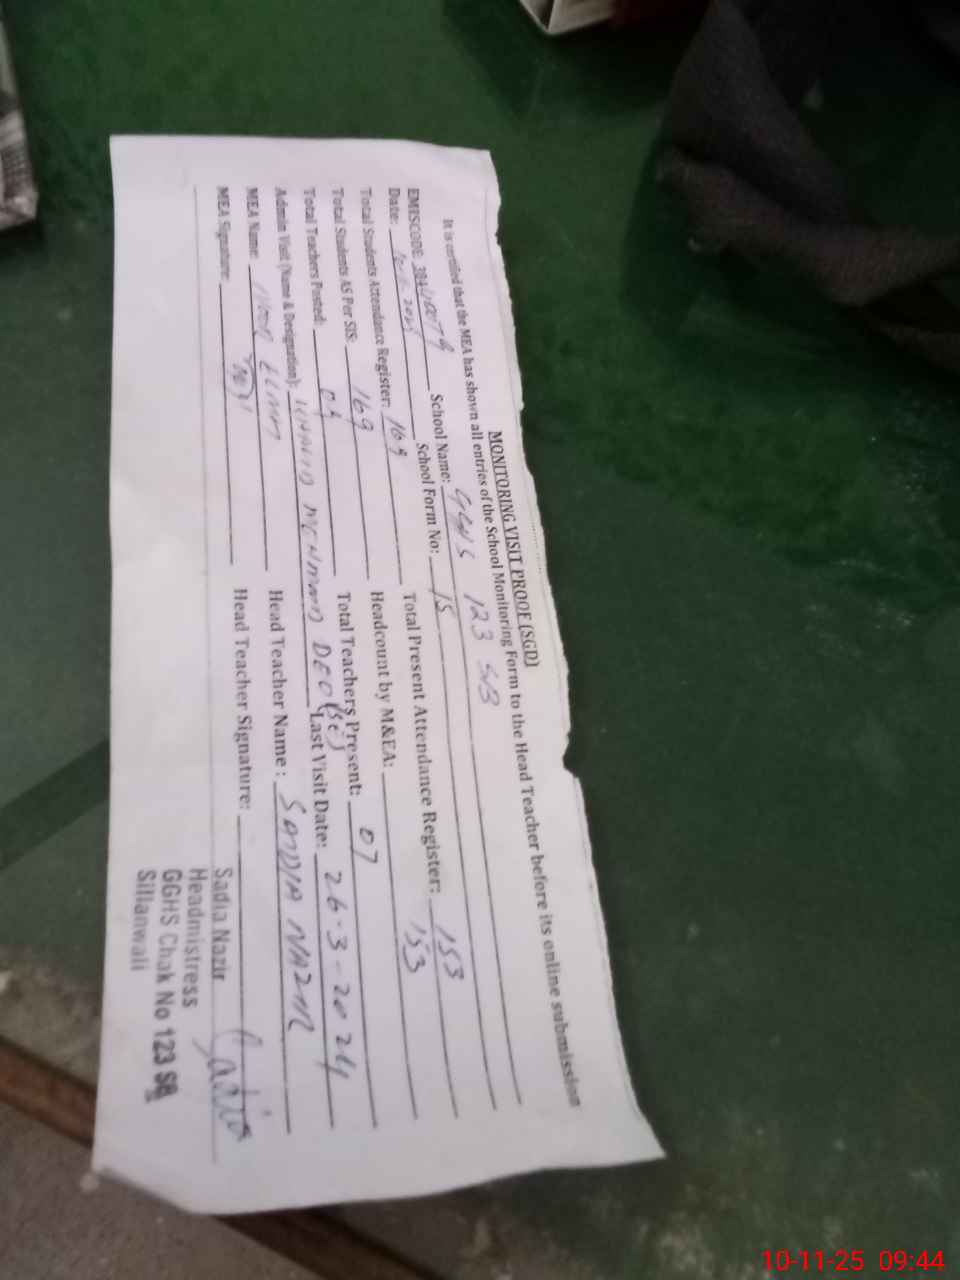 MONITORING VISIT PROOF (SGD)
It is certified that the MEA has shown all entries of the School Monitoring Form to the Head Teacher before its online submission
EMISCODE: 384 School Name: GGHS 123 SB
Date: School Form No: 15
Total Students Attendance Register: 169 Total Present Attendance Register: 153
Total Students AS Per SIS: 169 Headcount by M&EA: 153
Total Teachers Posted: 09 Total Teachers Present: 07
Admin Visit (Name & Designation): DEO (SE) Last Visit Date: 26-3-2024
MEA Name: Head Teacher Name: SAADIA NAZIR
MEA Signature: Head Teacher Signature: Sadia
Sadia Nazir
Headmistress
GGHS Chak No 123 SB
Sillanwali
10-11-25 09:44